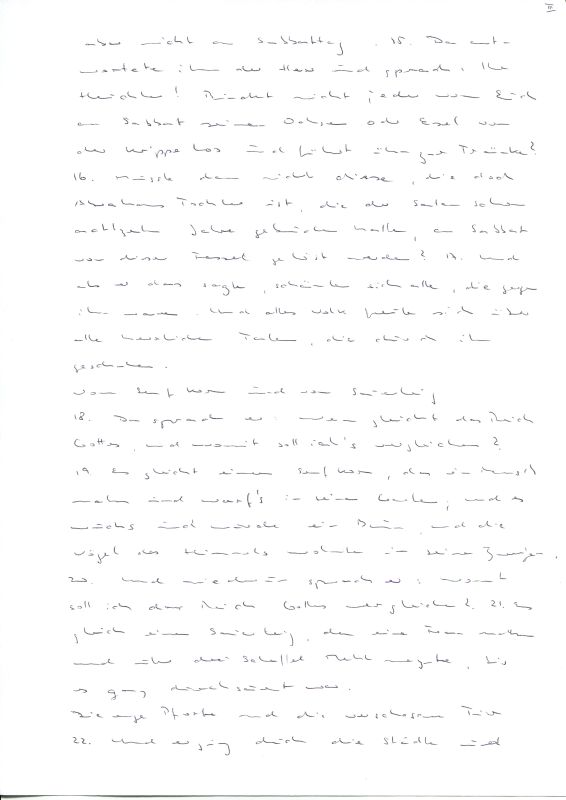 III
aber nicht am Sabbattag. 15. Da ant-
wortete ihm der Herr und sprach: Ihr
Heuchler! Bindet nicht jeder von Euch
am Sabbat seinen Ochsen oder Esel von
der Krippe los und führt ihn zur Tränke?
16. Musste dann nicht diese, die doch
Abrahams Tochter ist, die der Satan schon
achtzehn Jahre gebunden hatte, am Sabbat
von dieser Fessel gelöst werden? 17. Und
als er das sagte, schämten sich alle, die gegen
ihn waren. Und alles Volk freute sich über
alle herrlichen Taten, die durch ihn
geschahen.
Vom Senfkorn und vom Sauerteig
18. Da sprach er: wem gleicht das Reich
Gottes, und womit soll ich's vergleichen?
19. Es gleicht einem Senfkorn, das ein Mensch
nahm und warf's in seinen Garten; und es
wuchs und wurde ein Baum, und die
Vögel des Himmels wohnten in seinen Zweigen.
20. Und wiederum sprach er: womit
soll ich das Reich Gottes vergleichen? 21. Es
gleicht einem Sauerteig, den eine Frau nahm
und unter drei Scheffel Mehl mengte, bis
es ganz durchsäuert war.
Die enge Pforte und die verschlossene Tür
22. Und er ging durch die Städte und